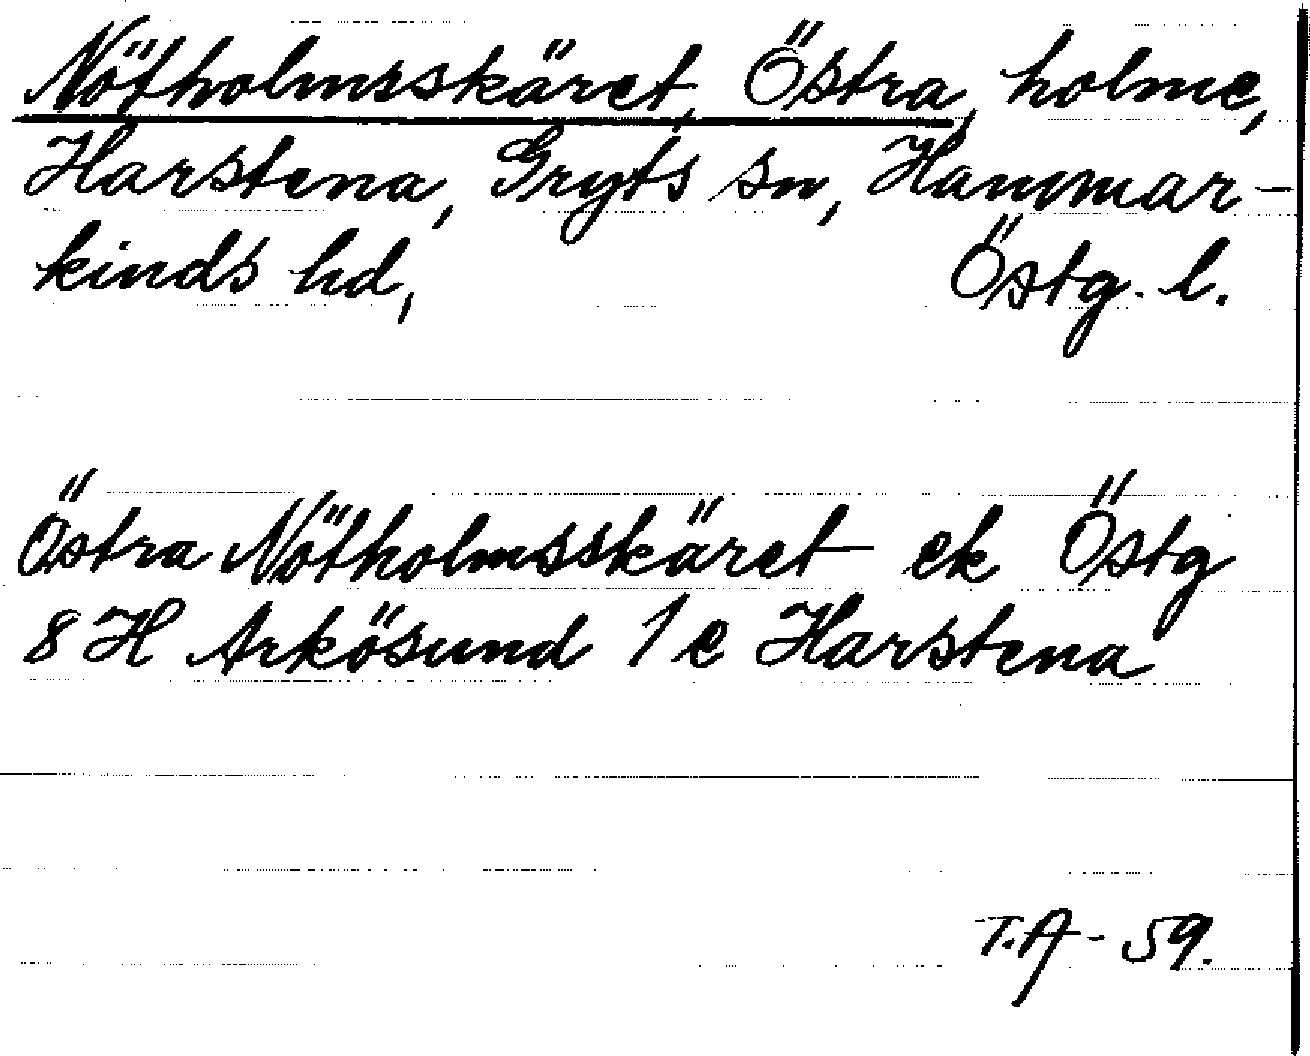 Nötholmsskäret, Östra, holme,
Harstena, Gryts sn, Hammar-
kinds hd, Östg. l.
Östra Nötholmsskäret ek Östg
8 H Arkösund 1 e Harstena
T.A - 59.